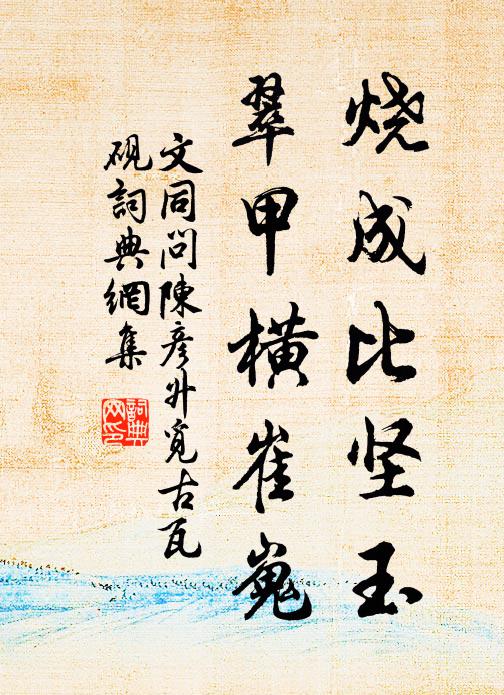 烧成比坚玉
翠甲横崔嵬
文同问陳彦升觅古瓦
砚詞典網集
詞典
网印